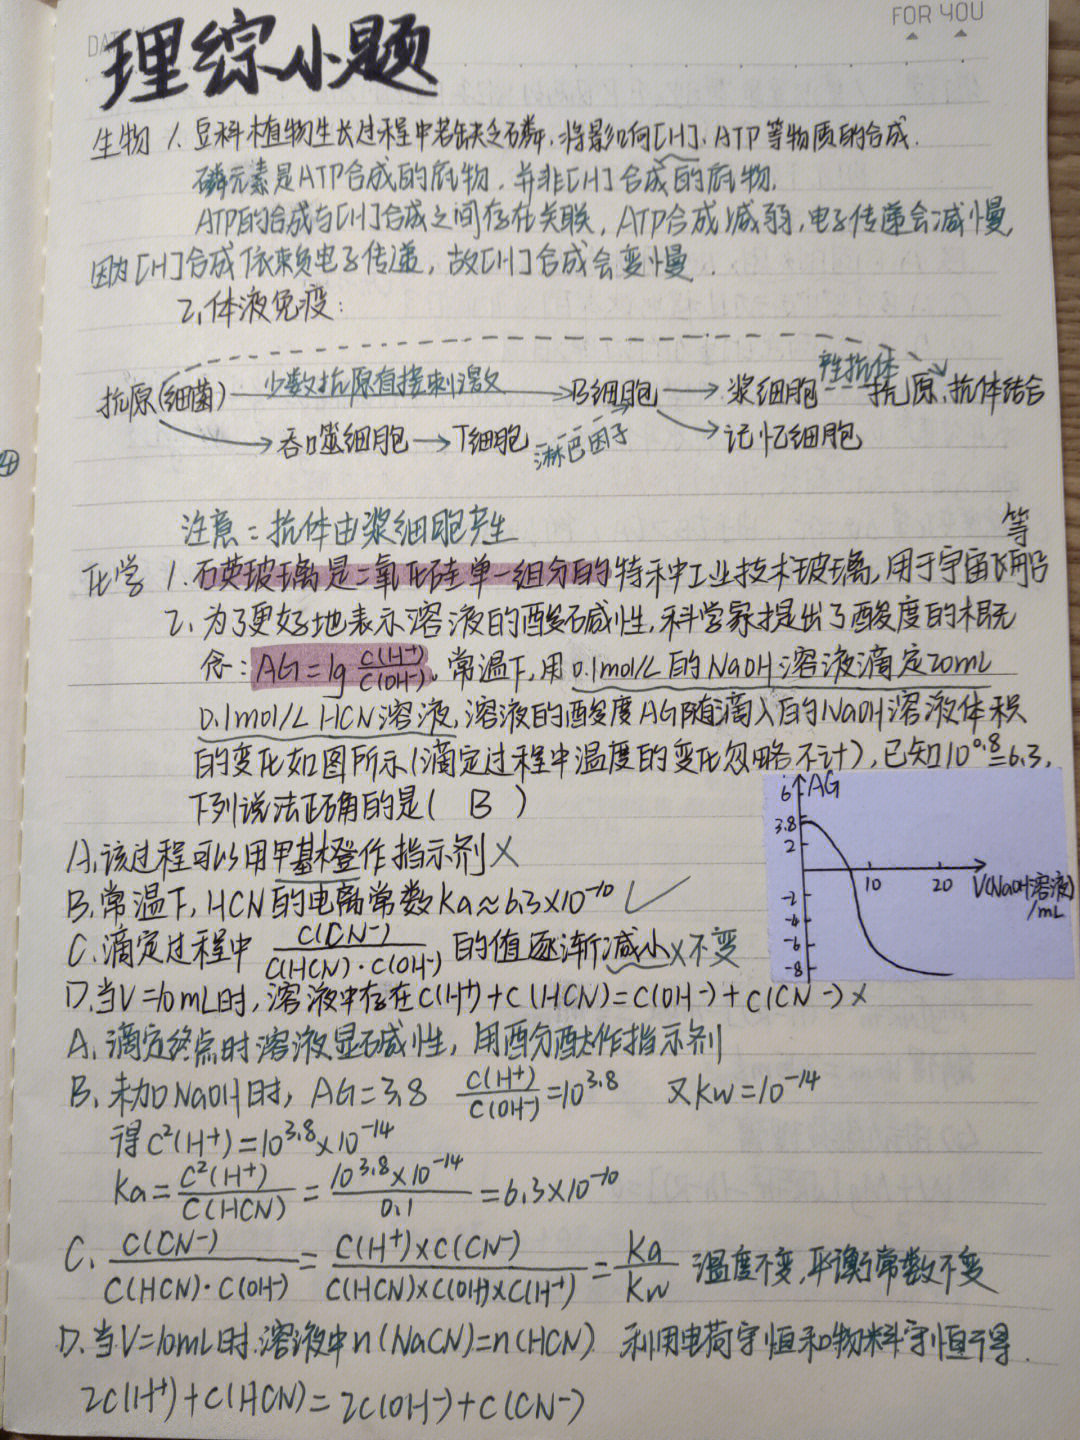 FOR YOU
理综小题
生物 1. 豆科植物生长过程中若缺乏磷，将影响[H]、ATP等物质的合成.
磷元素是ATP合成的底物，并非[H]合成的底物.
ATP的合成与[H]合成之间存在关联，ATP合成减弱，电子传递会减慢，
因为[H]合成依赖电子传递，故[H]合成会变慢.
2. 体液免疫：
抗原(细菌) 少数抗原直接刺激 B细胞 浆细胞 产生抗体 抗原、抗体结合
吞噬细胞 T细胞 淋巴因子 记忆细胞
④
注意：抗体由浆细胞产生
化学 1. 石英玻璃是二氧化硅单一组分的特种工业技术玻璃，用于宇宙飞船等
2. 为了更好地表示溶液的酸碱性，科学家提出了酸度的概
念：AG=lg c(H⁺)/c(OH⁻)，常温下，用0.1mol/L的NaOH溶液滴定20mL
0.1mol/L HCN溶液，溶液的酸度AG随滴入的NaOH溶液体积
的变化如图所示(滴定过程中温度的变化忽略不计)，已知10^0.8=6.3，
下列说法正确的是( B )
6 AG
3.8
2
10 20 V(NaOH溶液)/mL
-2
-4
-6
-8
A. 该过程可以用甲基橙作指示剂 ×
B. 常温下，HCN的电离常数Ka≈6.3×10⁻¹⁰ ✓
C. 滴定过程中 c(CN⁻)/c(HCN)·c(OH⁻) 的值逐渐减小 × 不变
D. 当V=10mL时，溶液中存在c(H⁺)+c(HCN)=c(OH⁻)+c(CN⁻) ×
A. 滴定终点时溶液显碱性，用酚酞作指示剂
B. 未加NaOH时，AG=3.8 c(H⁺)/c(OH⁻)=10^3.8 又Kw=10⁻¹⁴
得c²(H⁺)=10^3.8×10⁻¹⁴
Ka=c²(H⁺)/c(HCN)=10^3.8×10⁻¹⁴/0.1=6.3×10⁻¹⁰
C. c(CN⁻)/c(HCN)·c(OH⁻)=c(H⁺)×c(CN⁻)/c(HCN)×c(OH⁻)×c(H⁺)=Ka/Kw 温度不变，平衡常数不变
D. 当V=10mL时.溶液中n(NaCN)=n(HCN) 利用电荷守恒和物料守恒可得.
2c(H⁺)+c(HCN)=2c(OH⁻)+c(CN⁻)